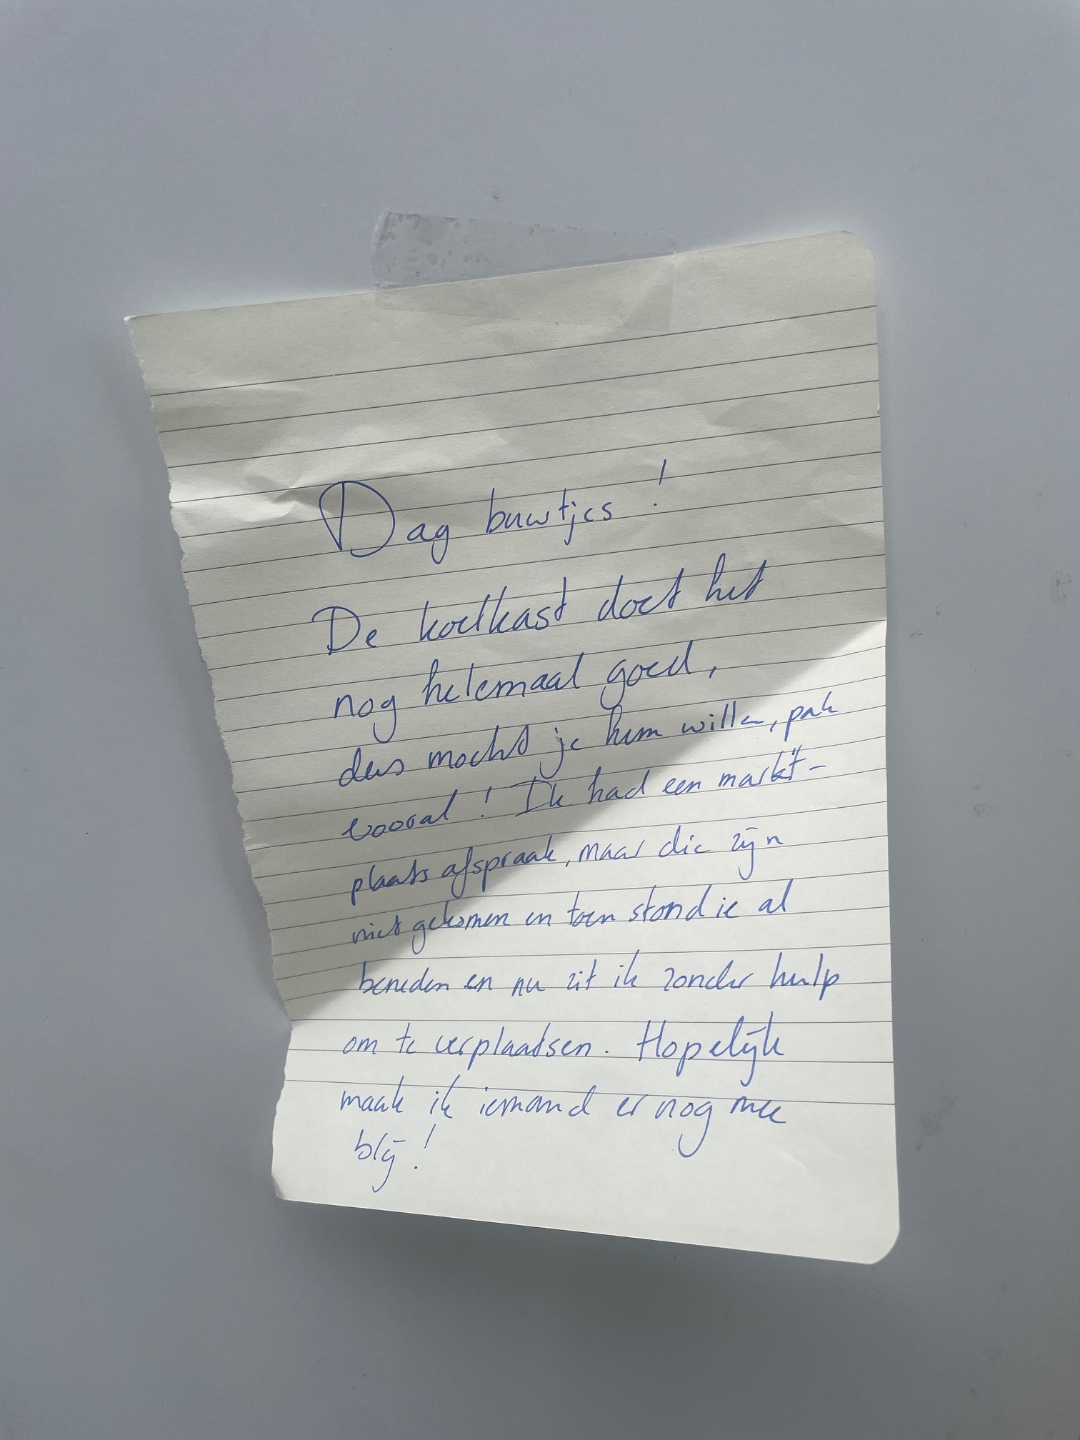 Dag buurtjes!
De koelkast doet het
nog helemaal goed,
dus mocht je hem willen, pak
vooral! Ik had een markt-
plaats afspraak, maar die zijn
niet gekomen en toen stond ie al
beneden en nu zit ik zonder hulp
om te verplaatsen. Hopelijk
maak ik iemand er nog mee
blij!